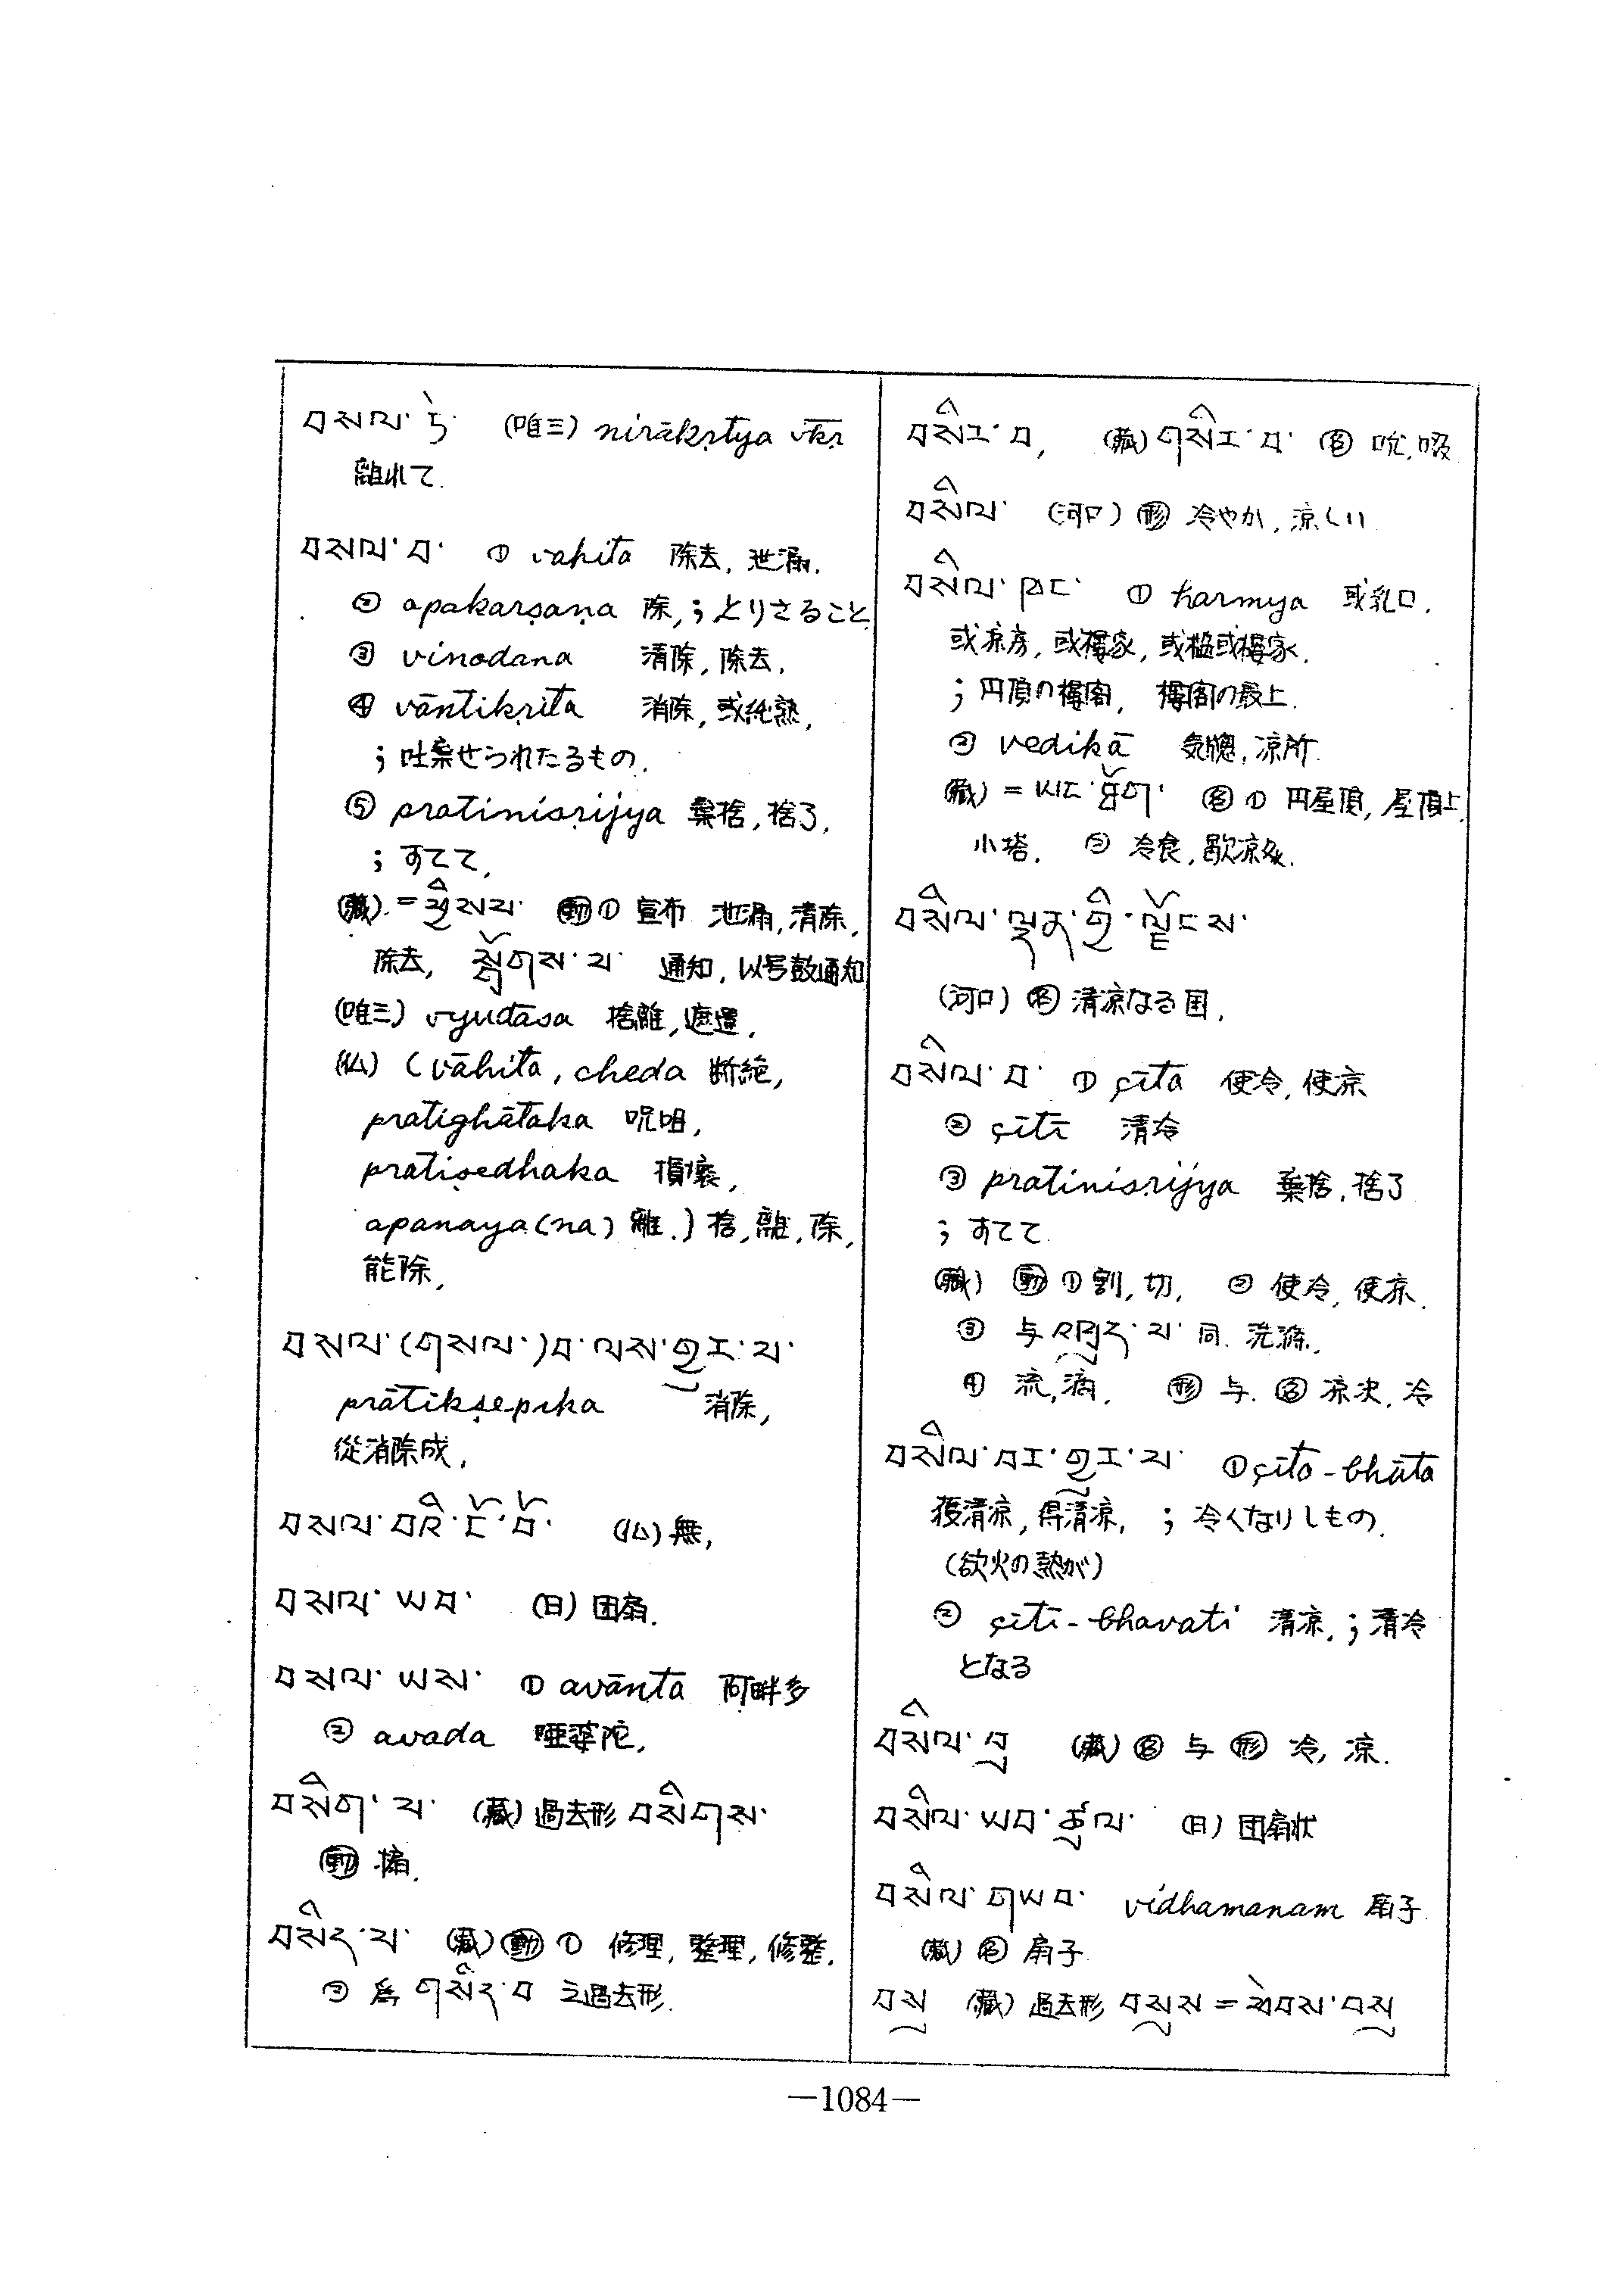 བསལ་ཏེ་ (唯三) nirākṛtya √kṛ
離れて.
བསལ་བ་ ① vahita 除去, 泄漏.
② apakarṣaṇa 除,;とりさること
③ vinodana 清除, 除去,
④ vāntikṛita 消除, 或純熟,
;吐棄せられたるもの.
⑤ pratinisṛijya 棄捨, 捨了,
;すてて,
(藏). = ཕྱིས་པ་ 動 ① 宣布 泄漏, 清除,
除去, སྒྲོགས་པ་ 通知, 以号鼓通知
(唯三) vyudāsa 捨離, 遮遣.
(仏) (vāhita, cheda 断絶,
pratighātaka 呪咀,
pratiṣedhaka 損壊,
apanaya(na) 離.) 捨, 離, 除,
能除,
བསལ་(གསལ་)བ་ལས་བྱུང་བ་
prātikṣepika 消除,
從消除成,
བསལ་བའི་ངོ་བོ་ (仏) 無,
བསལ་ཡབ་ (日) 团扇.
བསལ་ཡས་ ① avānta 阿畔多
② avada 唖婆陀,
བསིག་པ་ (藏) 過去形 བསིགས་
動 搧.
བསིད་པ་ (藏) 動 ① 修理, 整理, 修整.
② 為 གསིད་བ 之過去形.
བསིང་བ, (藏) གསིང་བ་ 名 吮, 吸
བསིལ་ (河口) 形 冷やか, 涼しい
བསིལ་ཁང་ ① harmya 或乳口.
或凉房, 或樓家, 或樞或樓家.
;円頂の樓閣, 樓閣の最上.
② vedikā 気牕, 凉所.
(藏) = ཡང་ཐོག་ 名 ① 円屋頂, 屋頂上
小塔. ② 冷食, 歇凉処.
བསིལ་ལྡན་གྱི་ལྗོངས་
(河口) 名 清凉なる国,
བསིལ་བ་ ① çīta 使冷, 使凉
② çīti 清冷
③ pratinisṛijya 棄捨, 捨了
;すてて
(藏) 動 ① 割, 切, ② 使冷, 使凉.
③ 与 འཁྲུད་པ་ 同. 洗滌.
④ 流, 滴. 形 与. 名 凉快, 冷
བསིལ་བར་གྱུར་པ་ ① çīta-bhūta
獲清凉, 得清凉, ;冷くなりしもの.
(欲火の熱が)
② çīti-bhavati 清凉,;清冷
となる
བསིལ་བུ (藏) 名 与 形 冷, 凉.
བསིལ་ཡབ་ཚུལ་ (日) 团扇状
བསིལ་གཡབ་ vidhamanam 扇子
(藏) 名 扇子
བསུ (藏) 過去形 བསུས = སེབས་བསུ
—1084—